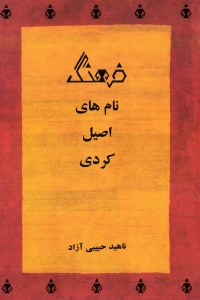 فرهنگ
نام های
اصیل
کردی
ناهید حبیبی آزاد